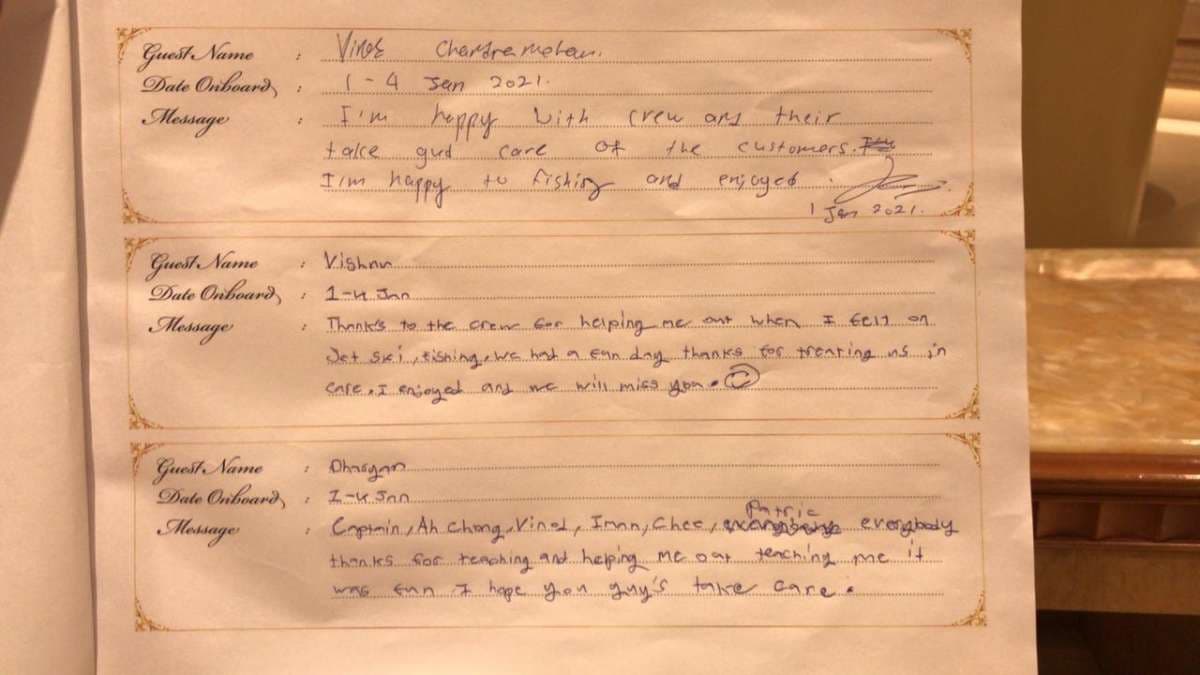 Guest Name : Vinod Chandramohan.
Date Onboard : 1 - 4 Jan 2021.
Message : I'm happy with crew and their
take gud care of the customers.
I'm happy to fishing and enjoyed.
1 Jan 2021.
Guest Name : Vishnu
Date Onboard : 1-4 Jan
Message : Thank's to the crew for helping me out when I fell on
Jet Ski, fishing, we had a fun day thanks for treating us in
care, I enjoyed and we will miss you.
Guest Name : Dhasyan
Date Onboard : 1-4 Jan
Patric
Message : Captain, Ah Chong, Vinod, Iman, Chee, everybody
thanks for teaching and helping me out teaching me it
was fun I hope you guy's take care.